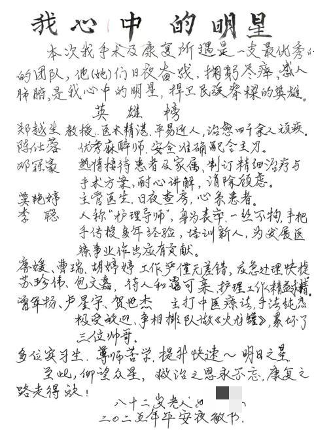 我心中的明星
本次我手术及康复所遇是一支最优秀
的团队，他(她)们日夜奋战，鞠躬尽瘁，感人
肺腑，是我心中的明星，捍卫民族脊梁的英雄。
英雄榜
郑越生 教授，医术精湛，平易近人，治愈四千余人顽疾。
陈仕蓉 优秀麻醉师，安全准确配合主刀。
邓冠豪 热情接待患者及家属，制订精细治疗与
手术方案，耐心讲解，消除顾虑。
樊艳婷 主管医生，日夜查房，心系患者。
李聪 人称“护理导师”，身为表率，一丝不苟，手把
手传授多年经验，培训新人，为发展医
疗事业作出应有贡献。
曹瑞、胡婷婷 工作严谨无差错，应急处理快捷
苏珍伟、包文 待人和蔼可亲，护理工作精益求精
卢星宇、贺世杰 主打中医疗法，手法纯熟
极受欢迎，争相排队做《火龙罐》
三位帅哥。
多位实习生 尊师苦学，提升快速～明日之星
至此，仰望众星，救治之恩永不忘，康复之
路走得欢！
八十二岁老人
二〇二五年平安夜敬书